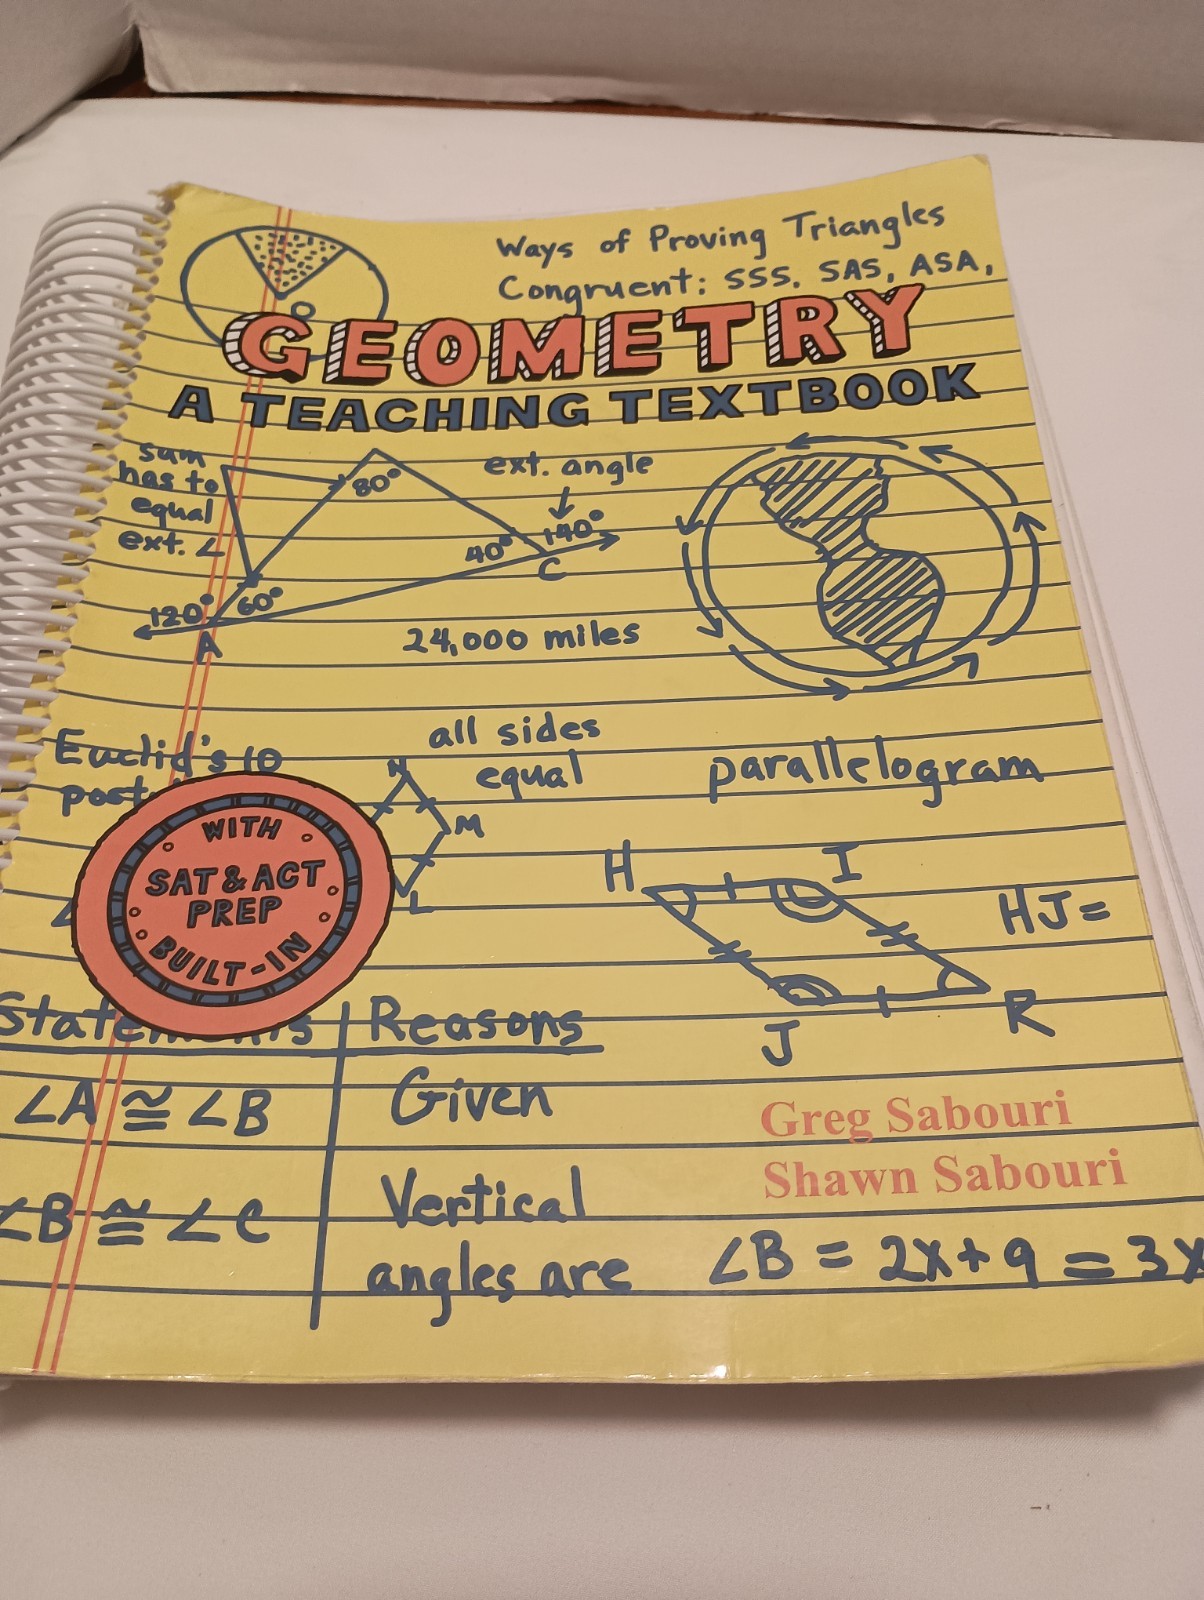 Ways of Proving Triangles
Congruent: SSS, SAS, ASA,
O
GEOMETRY
A TEACHING TEXTBOOK
sum
has to
equal
ext. ∠
80°
ext. angle
40°
140°
C
120°
60°
A
24,000 miles
Euclid's 10
all sides
equal
parallelogram
N
M
L
WITH
SAT & ACT
PREP
BUILT-IN
H
I
J
R
HJ=
Statements
Reasons
∠A ≅ ∠B
Given
∠B ≅ ∠C
Vertical
angles are
Greg Sabouri
Shawn Sabouri
∠B = 2x+9 = 3x